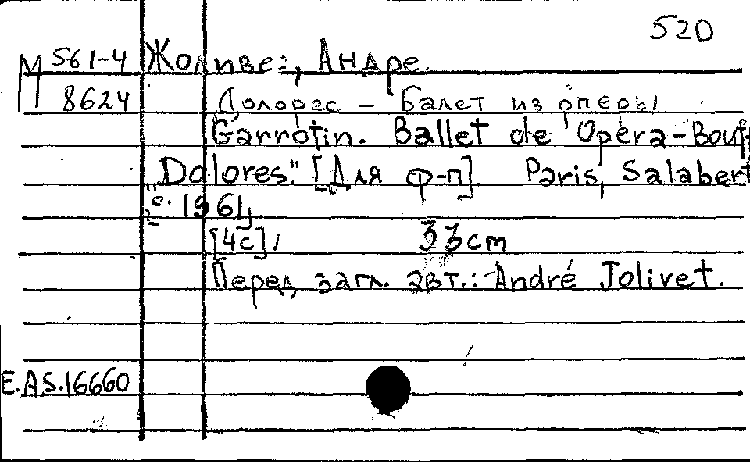 520
М 561-4 Жоливе, Андре.
8624 Долорес – Балет из оперы
Garrotin. Ballet de Opéra-Bouf
Dolores." [Для ф-п]. Paris, Salabert
"c. 1961,
[4c], 33cm
Перед загл. авт.: André Jolivet.
E.A.S.16660